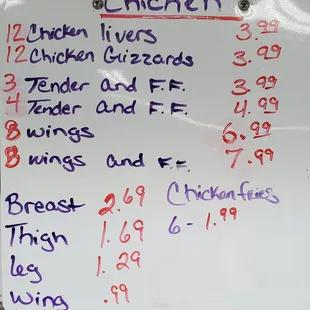 Chicken
12 Chicken livers 3.99
12 Chicken Gizzards 3.99
3 Tender and F.F. 3.99
4 Tender and F.F. 4.99
8 wings 6.99
8 wings and F.F. 7.99
Breast 2.69
Thigh 1.69
leg 1.29
Wing .99
Chicken fries
6 - 1.99